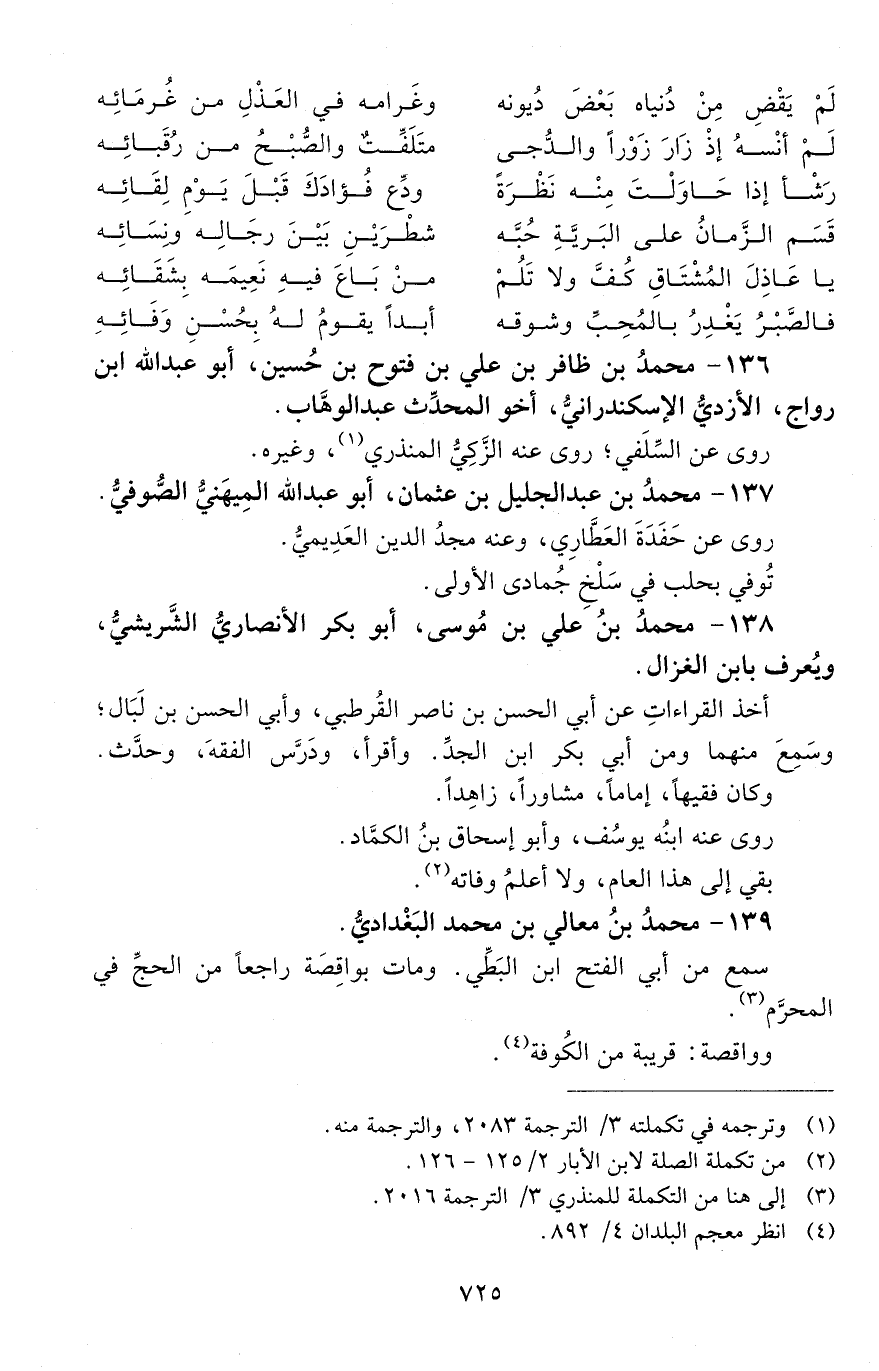 لَمْ يَقْضِ مِنْ دُنياه بَعْضَ دُيونه وغَرامه في العَذْلِ من غُرمَائِه
لَمْ أنْسهُ إذْ زَارَ زَوْراً والدُّجى متَلَفِّتٌ والصُّبْحُ من رُقَبَائِه
رَشأ إذا حَاوَلْتَ مِنْه نَظْرَةً ودِّع فُؤادَكَ قَبْلَ يَوْمِ لِقَائِه
قَسَم الزَّمانُ على البَريَّةِ حُبَّه شطْرَيْنِ بَيْنَ رجَالِه ونِسَائِه
يا عَاذِلَ المُشْتَاقِ كُفَّ ولا تَلُمْ منْ بَاعَ فيهِ نَعِيمَه بِشَقَائِه
فالصَّبْرُ يَغْدِرُ بالمُحِبِّ وشوقه أبداً يقومُ لهُ بِحُسْنِ وَفَائِهِ
١٣٦- محمدُ بن ظافر بن علي بن فتوح بن حُسين، أبو عبدالله ابن
رواج، الأزديُّ الإسكندرانيُّ، أخو المحدِّث عبدالوهَّاب.
روى عن السِّلَفي؛ روى عنه الزَّكيُّ المنذري(١)، وغيره.
١٣٧- محمدُ بن عبدالجليل بن عثمان، أبو عبدالله المِيهَنيُّ الصُّوفيُّ.
روى عن حَفَدَةَ العَطَّارِي، وعنه مجدُ الدين العَدِيميُّ.
تُوفي بحلب في سَلْخِ جُمادى الأولى.
١٣٨- محمدُ بنُ علي بن مُوسى، أبو بكر الأنصاريُّ الشَّريشيُّ،
ويُعرف بابن الغزال.
أخذ القراءاتِ عن أبي الحسن بن ناصر القُرطبي، وأبي الحسن بن لَبَال؛
وسَمِعَ منهما ومن أبي بكر ابن الجدِّ. وأقرأ، ودَرَّس الفقهَ، وحدَّث.
وكان فقيهاً، إماماً، مشاوراً، زاهِداً.
روى عنه ابنُه يوسُف، وأبو إسحاق بنُ الكمَّاد.
بقي إلى هذا العام، ولا أعلمُ وفاته(٢).
١٣٩- محمدُ بنُ معالي بن محمد البَغْداديُّ.
سمع من أبي الفتح ابن البَطِّي. ومات بواقِصَة راجعاً من الحجِّ في
المحرَّم(٣).
وواقصة: قريبة من الكُوفة(٤).
(١) وترجمه في تكملته ٣/ الترجمة ٢٠٨٣، والترجمة منه.
(٢) من تكملة الصلة لابن الأبار ٢/ ١٢٥ - ١٢٦.
(٣) إلى هنا من التكملة للمنذري ٣/ الترجمة ٢٠١٦.
(٤) انظر معجم البلدان ٤/ ٨٩٢.
٧٢٥